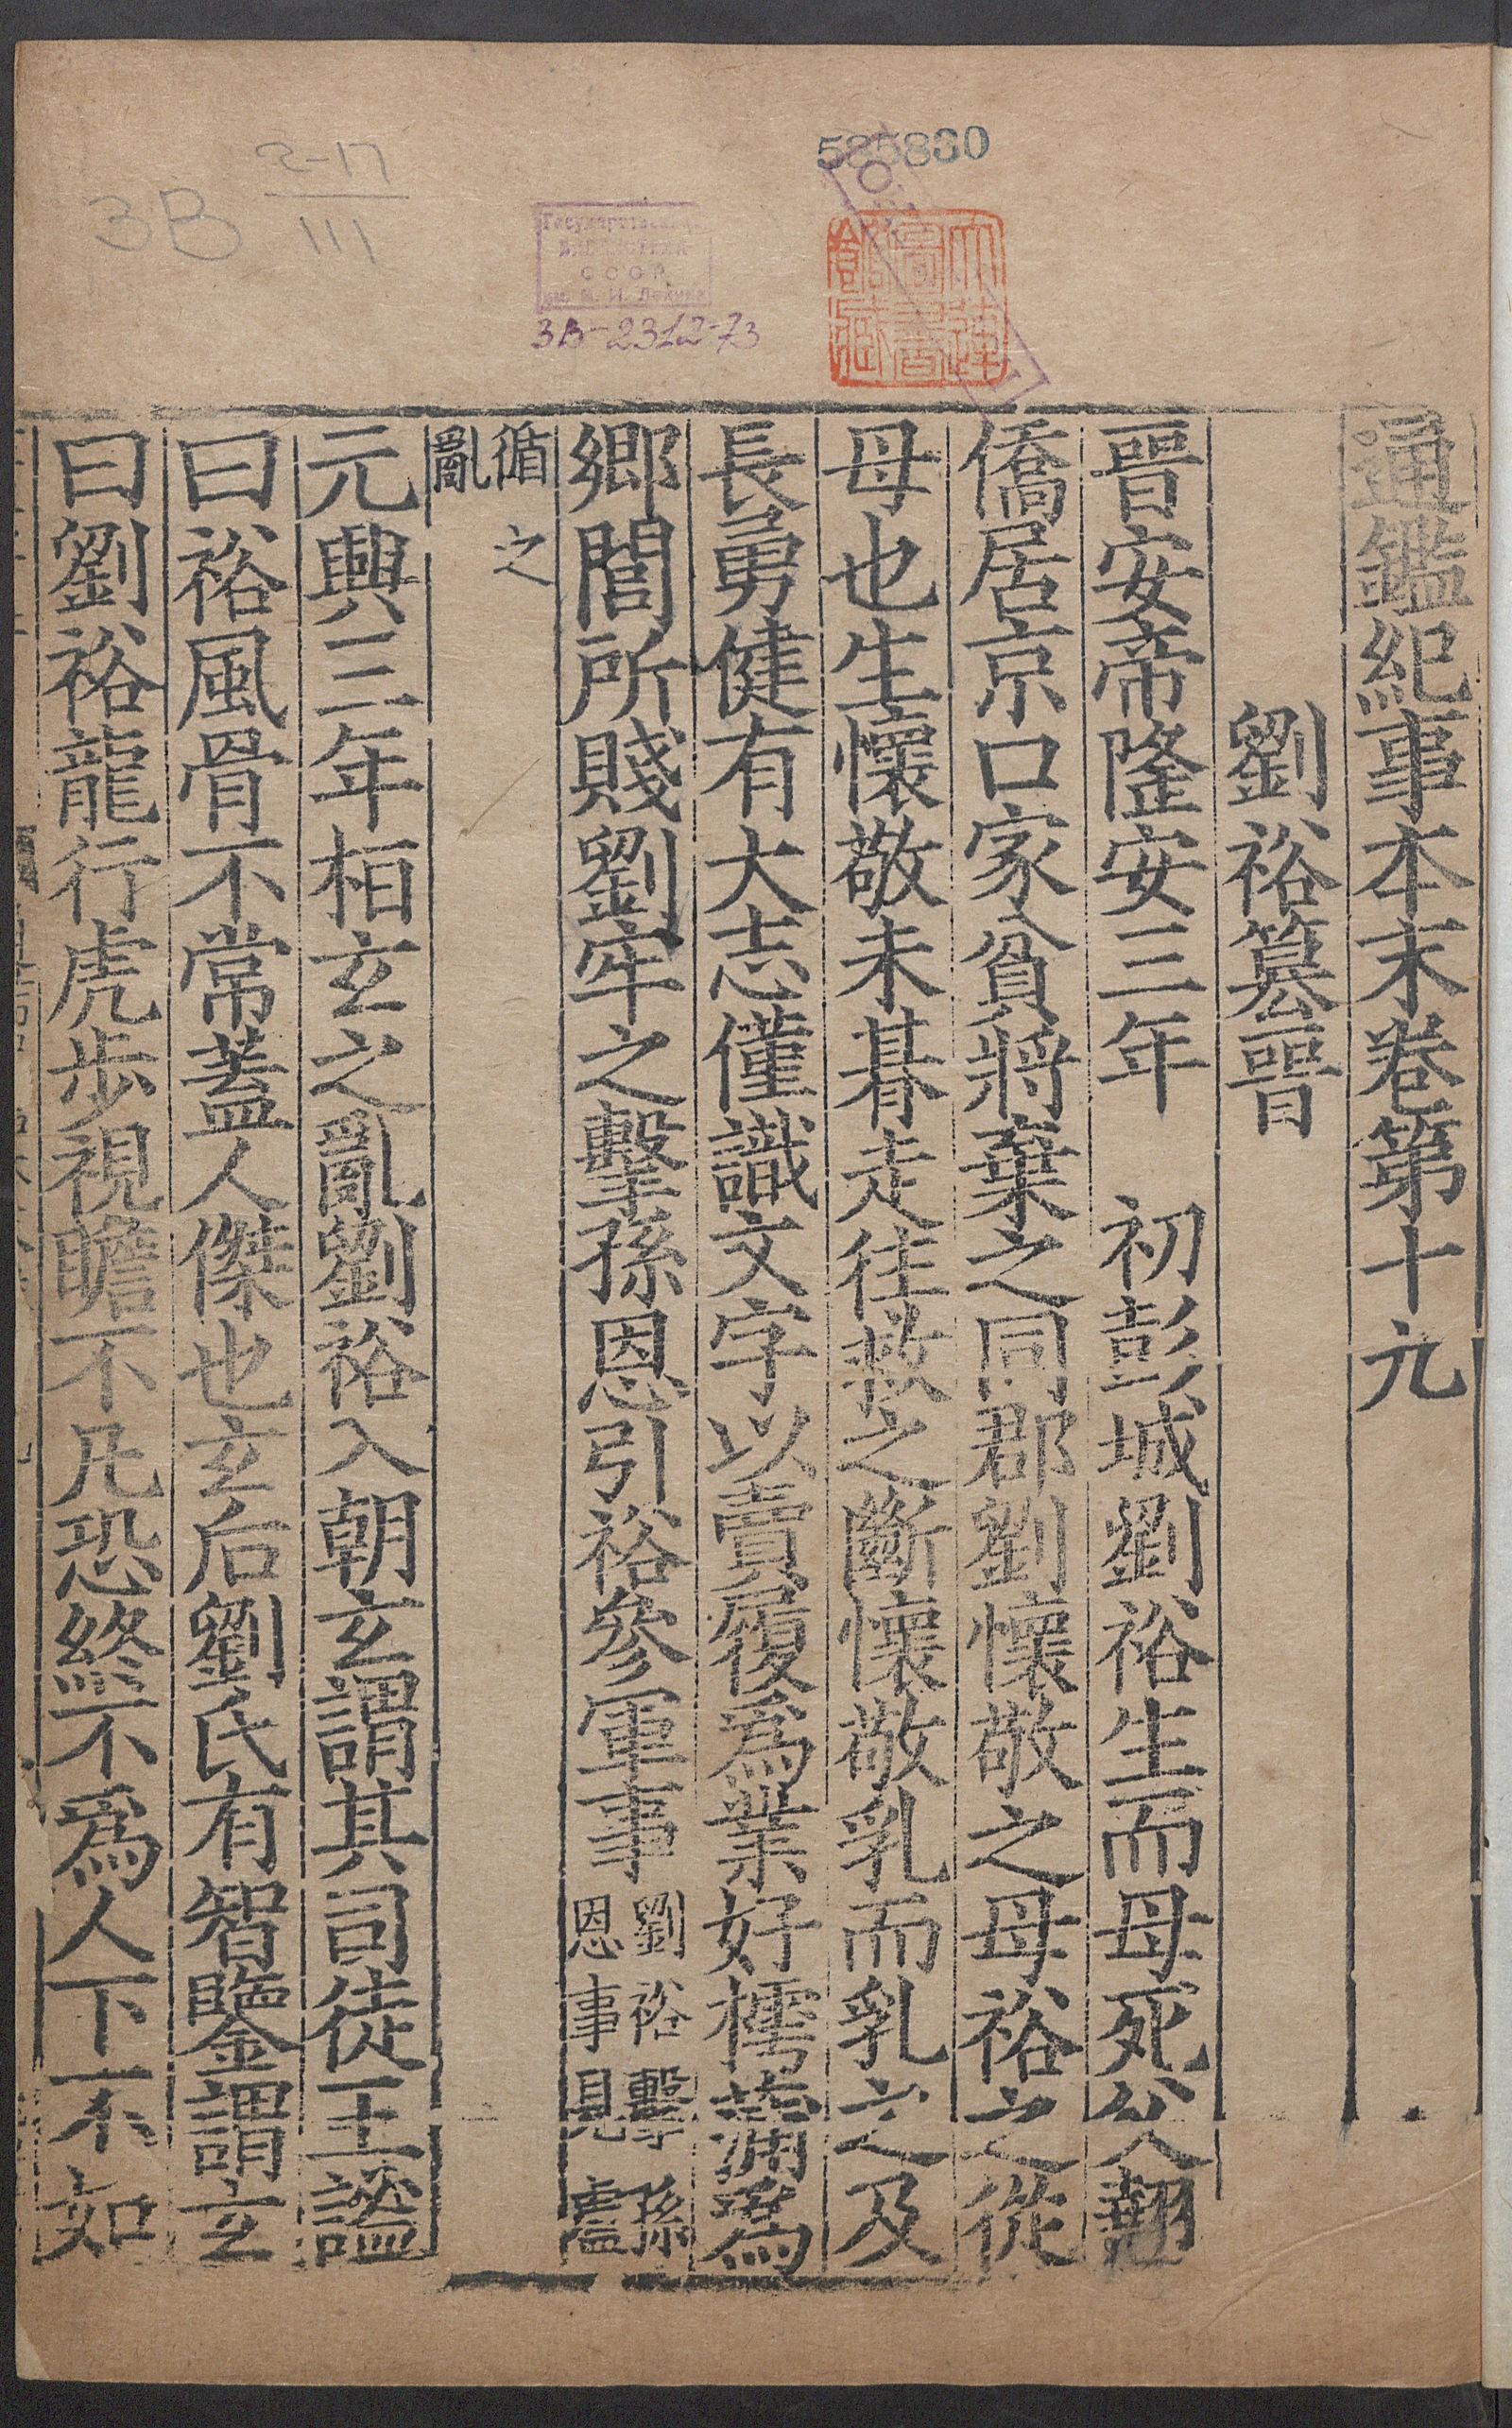 585830
2-17
3B
111
Государственная
БИБЛИОТЕКА
СССР
им. В. И. Ленина
3В-2312-73
大連圖書館藏
通鑑紀事本末卷第十九
劉裕篡晉
晉安帝隆安三年 初彭城劉裕生而母死父翹
僑居京口家貧將棄之同郡劉懷敬之母裕之從
母也生懷敬未朞走往救之斷懷敬乳而乳之及
長勇健有大志僅識文字以賣履爲業好樗蒲爲
鄉閭所賤劉牢之擊孫恩引裕參軍事劉裕擊孫恩事見盧
循之亂
元興三年桓玄之亂劉裕入朝玄謂其司徒王謐
曰裕風骨不常蓋人傑也玄后劉氏有智鑒謂玄
曰劉裕龍行虎步視瞻不凡恐終不爲人下不如